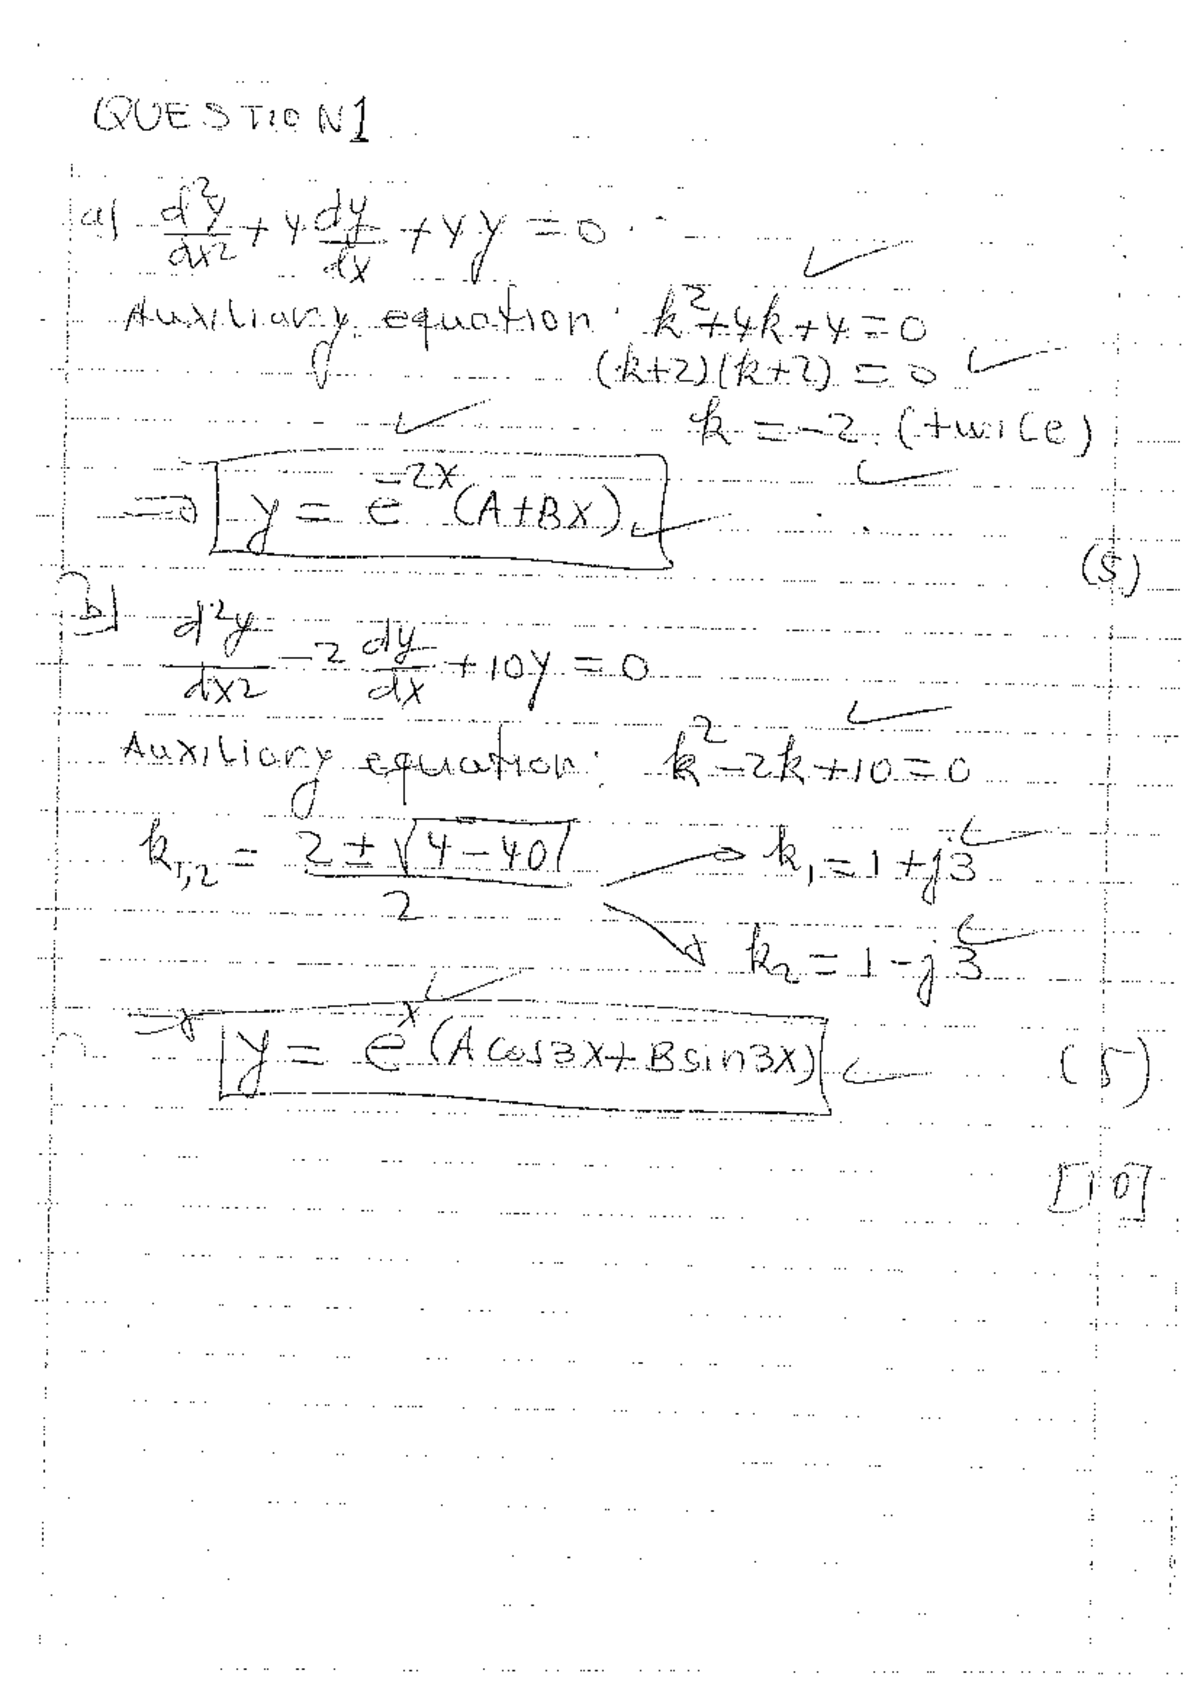 QUESTION 1
a) d²y/dx² + 4 dy/dx + 4y = 0
Auxiliary equation: k² + 4k + 4 = 0
(k+2)(k+2) = 0
k = -2 (twice)
⇒ y = e^(-2x) (A + Bx)
(5)
b) d²y/dx² - 2 dy/dx + 10y = 0
Auxiliary equation: k² - 2k + 10 = 0
k₁,₂ = (2 ± √(4 - 40))/2 → k₁ = 1 + j3
→ k₂ = 1 - j3
→ y = e^x (A cos3x + B sin3x) (5)
[10]